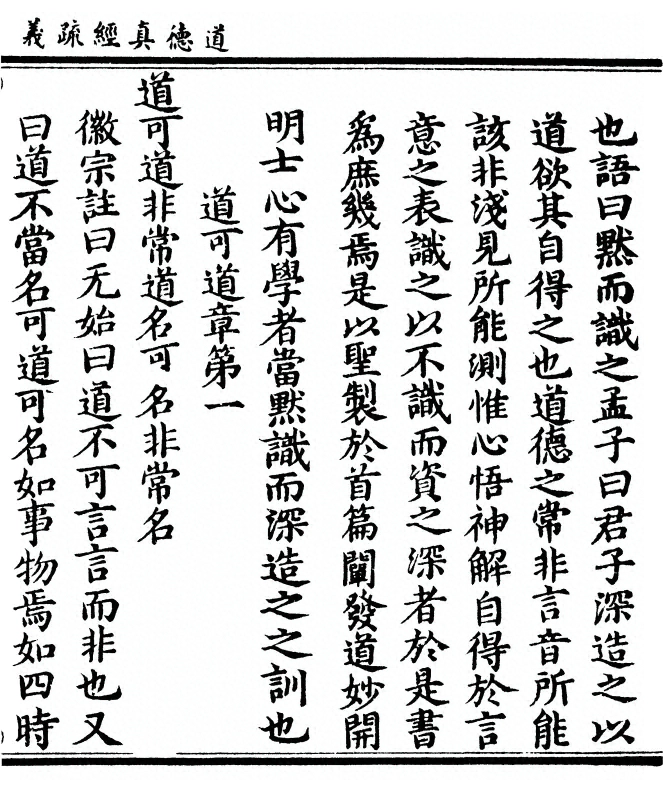 道德真經疏義
也語曰默而識之孟子曰君子深造之以
道欲其自得之也道德之常非言音所能
該非淺見所能測惟心悟神解自得於言
意之表識之以不識而資之深者於是書
爲庶幾焉是以聖製於首篇闡發道妙開
明士心有學者當默識而深造之之訓也
道可道章第一
道可道非常道名可名非常名
徽宗註曰无始曰道不可言言而非也又
曰道不當名可道可名如事物焉如四時